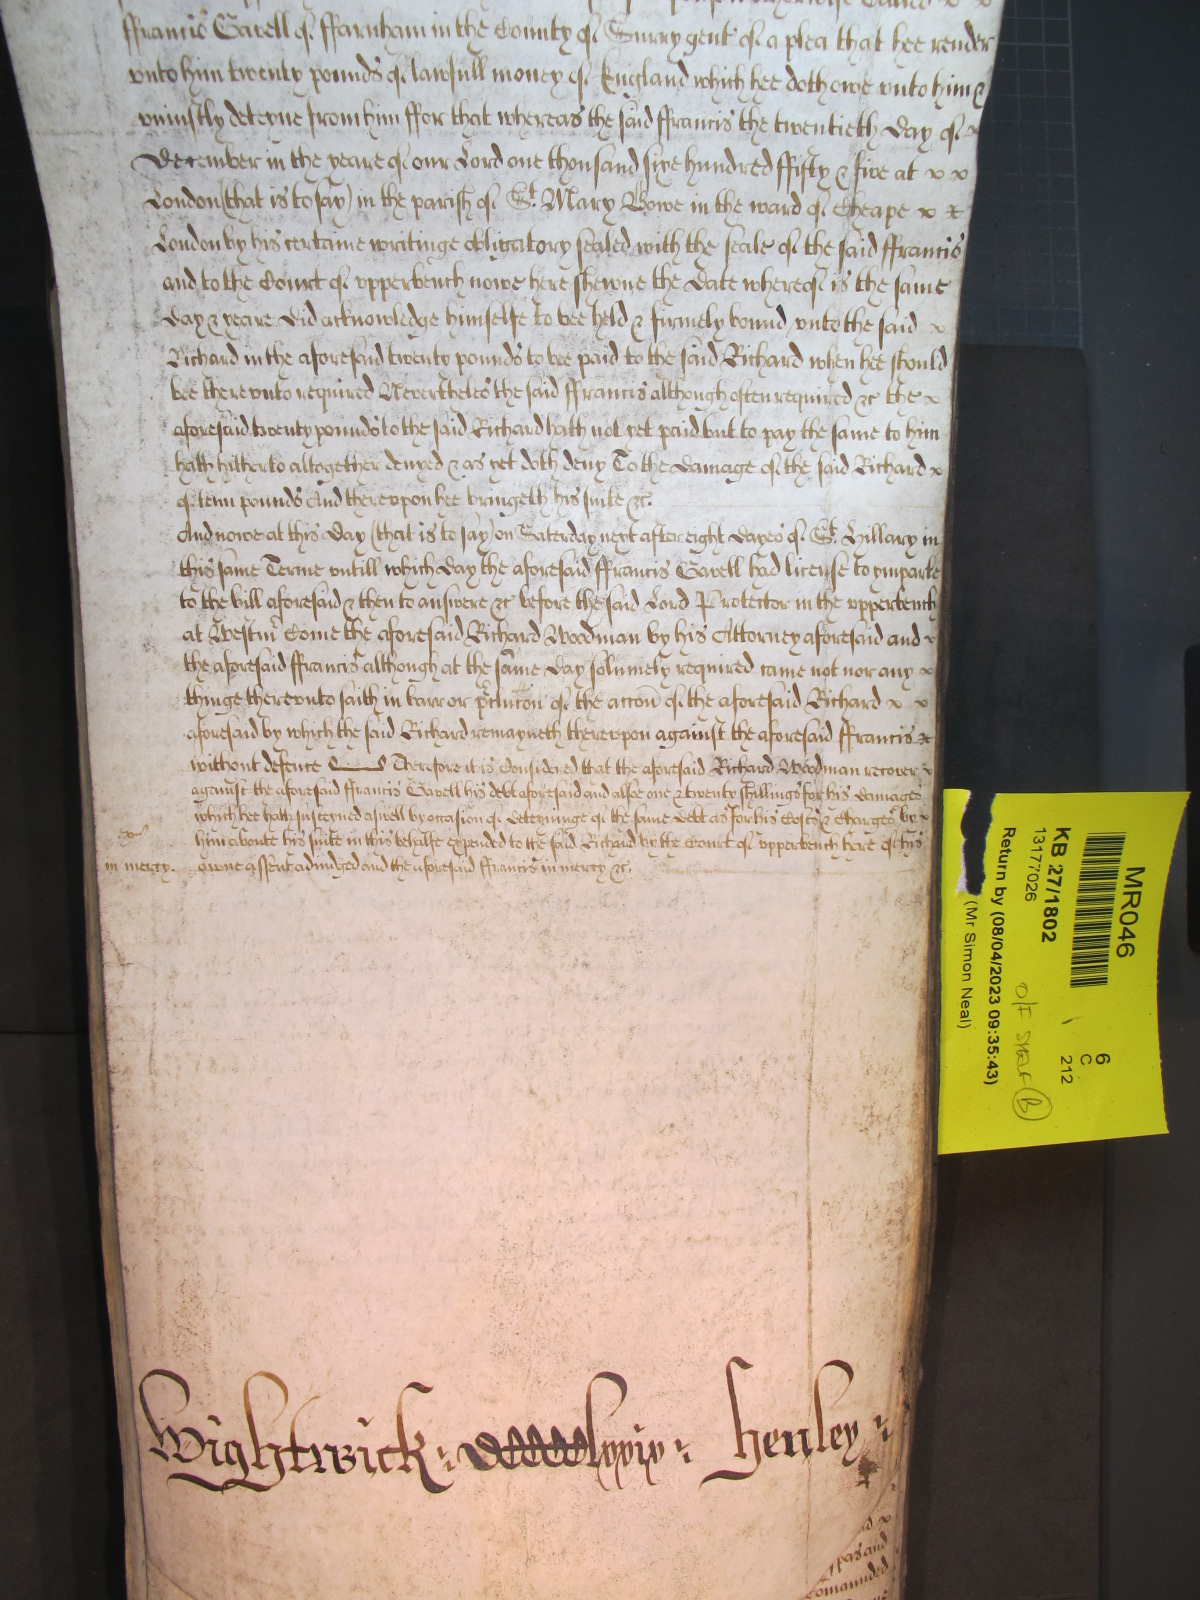 ffrancis Cavell of ffarnham in the County of Surry gent of a plea that hee render
vnto him twenty pounds of lawfull money of England which hee doth owe vnto him &
vniustly deteyne from him ffor that whereas the said ffrancis the twentieth Day of x
December in the yeare of our Lord one thousand sixe hundred ffifty & five at x x
London (that is to say) in the parish of St. Mary Bowe in the ward of Cheape x x
London by his certaine writinge obligatory sealed with the seale of the said ffrancis
and to the Court of vpperbench nowe here shewne the Date whereof is the same
Day & yeare Did acknowledge himselfe to bee held & firmely bound vnto the said x
Richard in the aforesaid twenty pounds to bee paid to the said Richard when hee should
bee therevnto required Neverthelesse the said ffrancis although often required &c the x
aforesaid twenty pounds to the said Richard hath not yet paid but to pay the same to him
hath hitherto altogether denyed & as yet doth deny To the Damage of the said Richard x
of tenn pounds And therevpon hee bringeth his suite &c.
And nowe at this Day (that is to say) on Saterday next after eight Dayes of St. Hillary in
this same Terme vntill which Day the aforesaid ffrancis Cavell had license to ymparle
to the bill aforesaid & then to answere &c before the said Lord Protector in the vpperbench
at Westmr Come the aforesaid Richard Woodman by his Attorney aforesaid and x
the aforesaid ffrancis although at the same Day solumely required came not nor any x
thinge therevnto saith in barr or preclucon of the accon of the aforesaid Richard x x
aforesaid by which the said Richard remayneth therevpon against the aforesaid ffrancis x
without defence Therefore it is Considered that the aforesaid Richard Woodman recover x
against the aforesaid ffrancis Cavell his debt aforesaid and alsoe one & twenty shillings for his Damages
which hee hath susteyned aswell by occasion of deteyninge of the same Debt as for his Costs & Charges by x
him aboute his suite in this behalfe expended to the said Richard by the Court of vpperbench here of his
in mercy. owne assent adiudged and the aforesaid ffrancis in mercy &c.
Wightwick : lxxix : henley :
MR046
KB 27/1802
13177026
Return by (08/04/2023 09:35:43)
(Mr Simon Neal)
6
C
212
O/F SHELF B
pas and
comannded